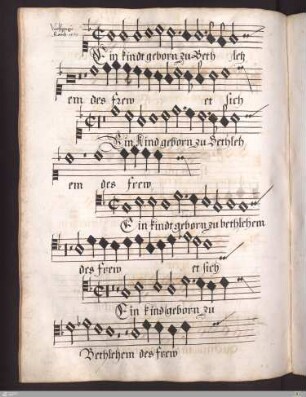 Ein kindt geborn zu Beth leh
em des frew et sich
Ein kind geborn zu Bethleh
em des frew
Ein kindt geborn zu bethlehem
des frew et sich
Ein kind geborn zu
Bethlehem des frew